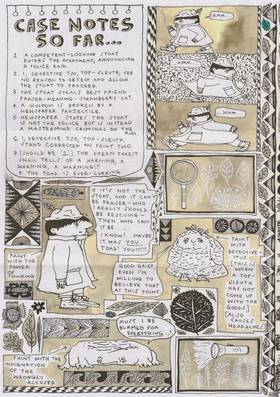 CASE NOTES
SO FAR...
1. A COMPETENT-LOOKING STOAT
ENTERS THE APARTMENT, ANNOUNCING
A POLICE RAID.
2. I, DETECTIVE TSO, TOP-SLEUTH, SEE
NO REASON TO OBJECT AND ALLOW
THE STOAT TO PROCEED.
3. THE STOAT STEALS BEST FRIEND
4. A WINDOW IS BROKEN BY A
NEWSPAPER PROJECTILE.
5. NEWSPAPER STATES THE STOAT
IS NOT THE POLICE BUT IS INSTEAD
A MASTERMIND CRIMINAL ON THE
RUN
6. I, DETECTIVE TSO, TOP-SLEUTH,
STAND CORRECTED ON POINT TWO.
SNAIL TELLS OF A WARNING, A
WARNING, A WARNING!!
8. THE TOAD IS EVER-LURKING
HMM..
HMM..
HMM...
IF IT'S NOT THE
STOAT, AND IT CAN'T
BE FRASER - WHO
I REALLY SHOULD
BE RESCUING -
THEN WHO CAN
IT BE
I KNOW! MAYBE
IT WAS YOU,
TOAD! YOU!!!
FAINT WITH THE
POWER OF
THINKING
GOOD GRIEF,
EVEN I'M
WILLING TO
BELIEVE THAT
AT THIS POINT
FAINT WITH
DETECTIVE
ITUS
(THIS IS
WHEN A
TOP
SLEUTH
HAS NOT
COME UP
WITH THE
GOODS)
(ALSO
CAUSES
HEADACHES)
MUST I BE
BLAMED FOR
EVERYTHING..?
FAINT WITH THE
INDIGNATION OF
THE WRONGLY
ACCUSED